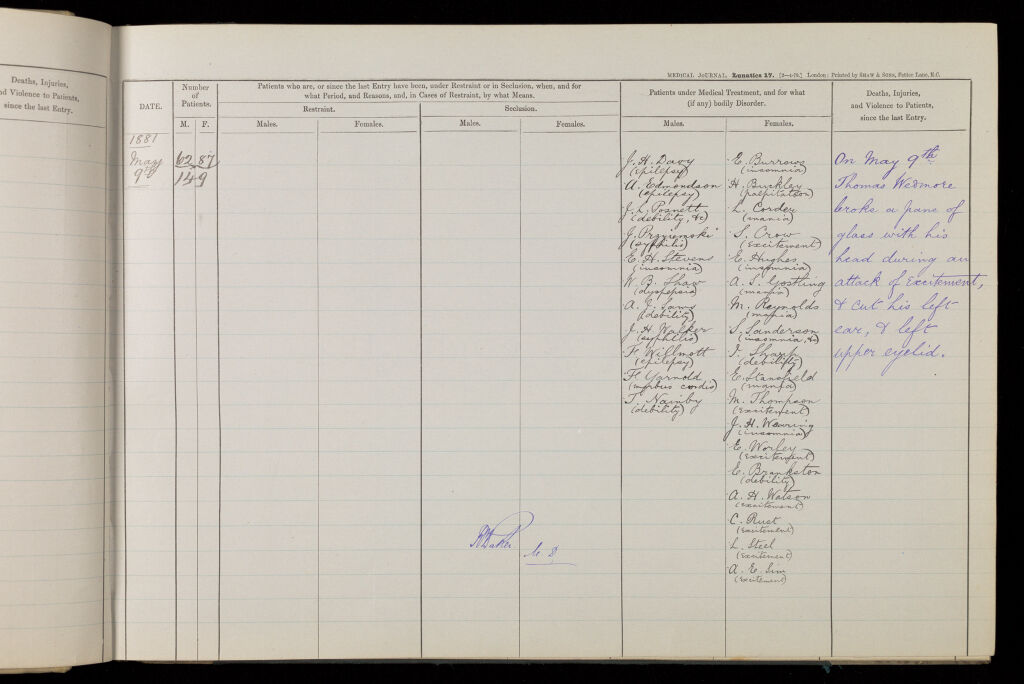 Deaths, Injuries,
and Violence to Patients,
since the last Entry.
MEDICAL JOURNAL. Lunatics 17. [2—4-79.] London: Printed by SHAW & SONS, Fetter Lane, E.C.
DATE.
Number
of
Patients.
M. F.
Patients who are, or since the last Entry have been, under Restraint or in Seclusion, when, and for
what Period, and Reasons, and, in Cases of Restraint, by what Means.
Restraint.
Seclusion.
Males.
Females.
Males.
Females.
Patients under Medical Treatment, and for what
(if any) bodily Disorder.
Males.
Females.
Deaths, Injuries,
and Violence to Patients,
since the last Entry.
1881
May
9th
62 87
149
J. H. Davy
(epilepsy)
A. Edmondson
(epilepsy)
J. L. Posnett
(debility, &c)
J.
(syphilis)
E. H. Stevens
(insomnia)
W. B. Shaw
(dyspepsia)
A. J.
(debility)
J. H. Walker
(syphilis)
F. Willmott
(epilepsy)
F. Yarnold
(morbus cordis)
T. Nainby
(debility)
E. Burrows
(insomnia)
H. Buckley
(palpitation)
L. Corder
(mania)
S. Crow
(excitement)
E. Hughes
(insomnia)
A. S. Gostling
(mania)
M. Reynolds
(mania)
S. Sanderson
(insomnia, &c)
I. Sharp
(debility)
E. Stansfield
(mania)
M. Thompson
(excitement)
J. H. Wearing
(insomnia)
E. Worley
(excitement)
E. Brankston
(debility)
A. H. Watson
(excitement)
C. Rust
(excitement)
L. Steel
(excitement)
A. E. Sim
(excitement)
On May 9th
Thomas Wedmore
broke a pane of
glass with his
head during an
attack of Excitement,
& cut his left
ear, & left
upper eyelid.
Baker